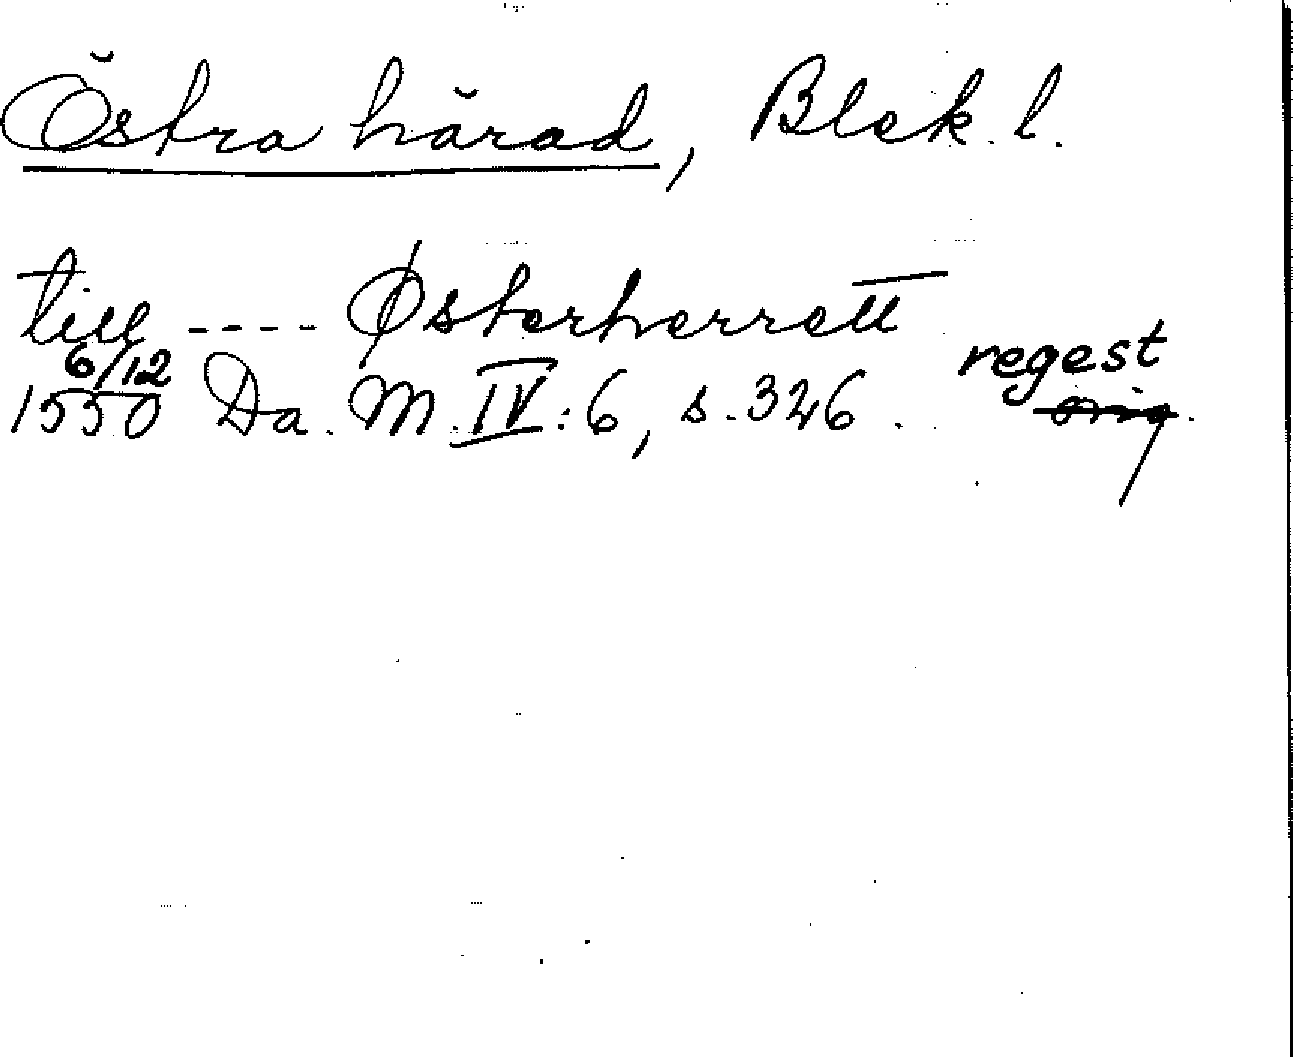 Östra härad, Blek. l.
till ---- Østerherrett
6/12 regest
1550 Da. M. IV: 6, s. 326. orig.